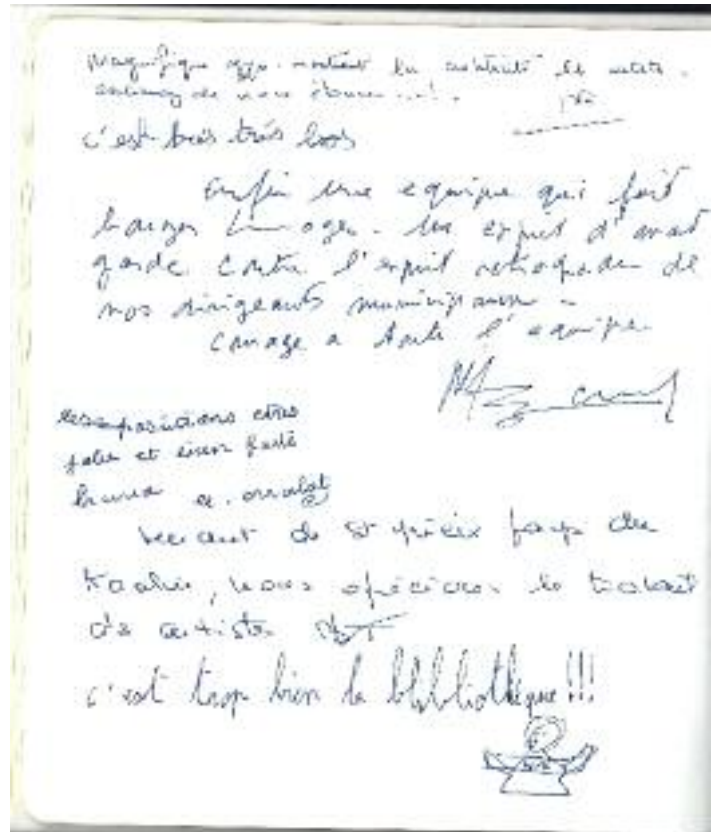 Magnifique expo. montrant la
de nous
c'est très très bos
Enfin une equipe qui fait
bouger Limoges - Un esprit d'avant
garde contre l'esprit retrograde de
nos dirigeants municipaux -
Courage a toute l'equipe
les expositions etres
jolie et bien faite
bravo a.
venant de St Yrieix pays du
Kaolin, nous apécions le talent
de artiste
c'est trop bien la blibliothèque!!!